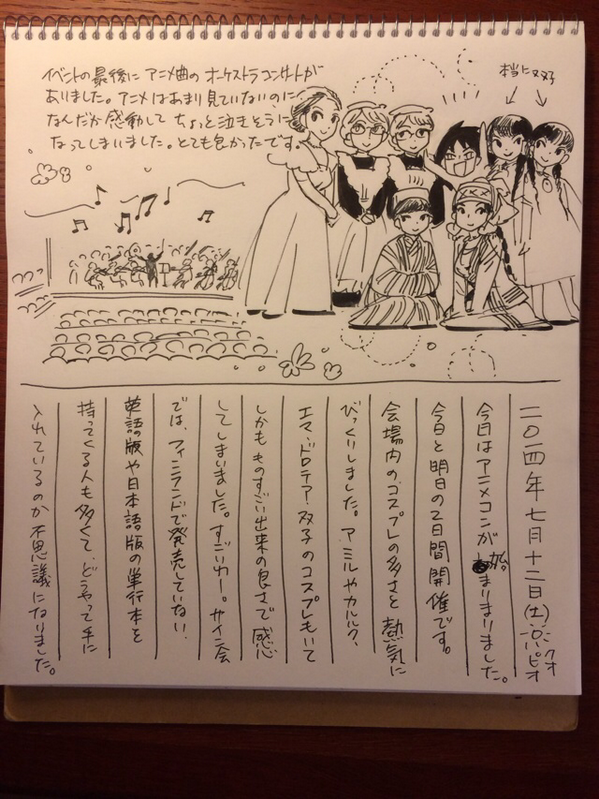 イベントの最後に アニメ曲の オーケストラコンサートが
ありました。アニメはあまり見ていないのに
なんだか感動して ちょっと泣きそうに
なってしまいました。とても良かったです。
本当に双子
二〇一四年七月十二日(土) クオピオ
今日はアニメコンが始まりまりました。
今日と明日の2日間開催です。
会場内のコスプレの多さと熱気に
びっくりしました。アミルやカルルク、
エマ、ドロテア、双子のコスプレもいて
しかもものすごい出来の良さで感心
してしまいました。すごいわー。サイン会
では、フィンランドで発売していない、
英語版や日本語版の単行本を
持ってくる人も多くて、どうやって手に
入れているのか不思議になりました。